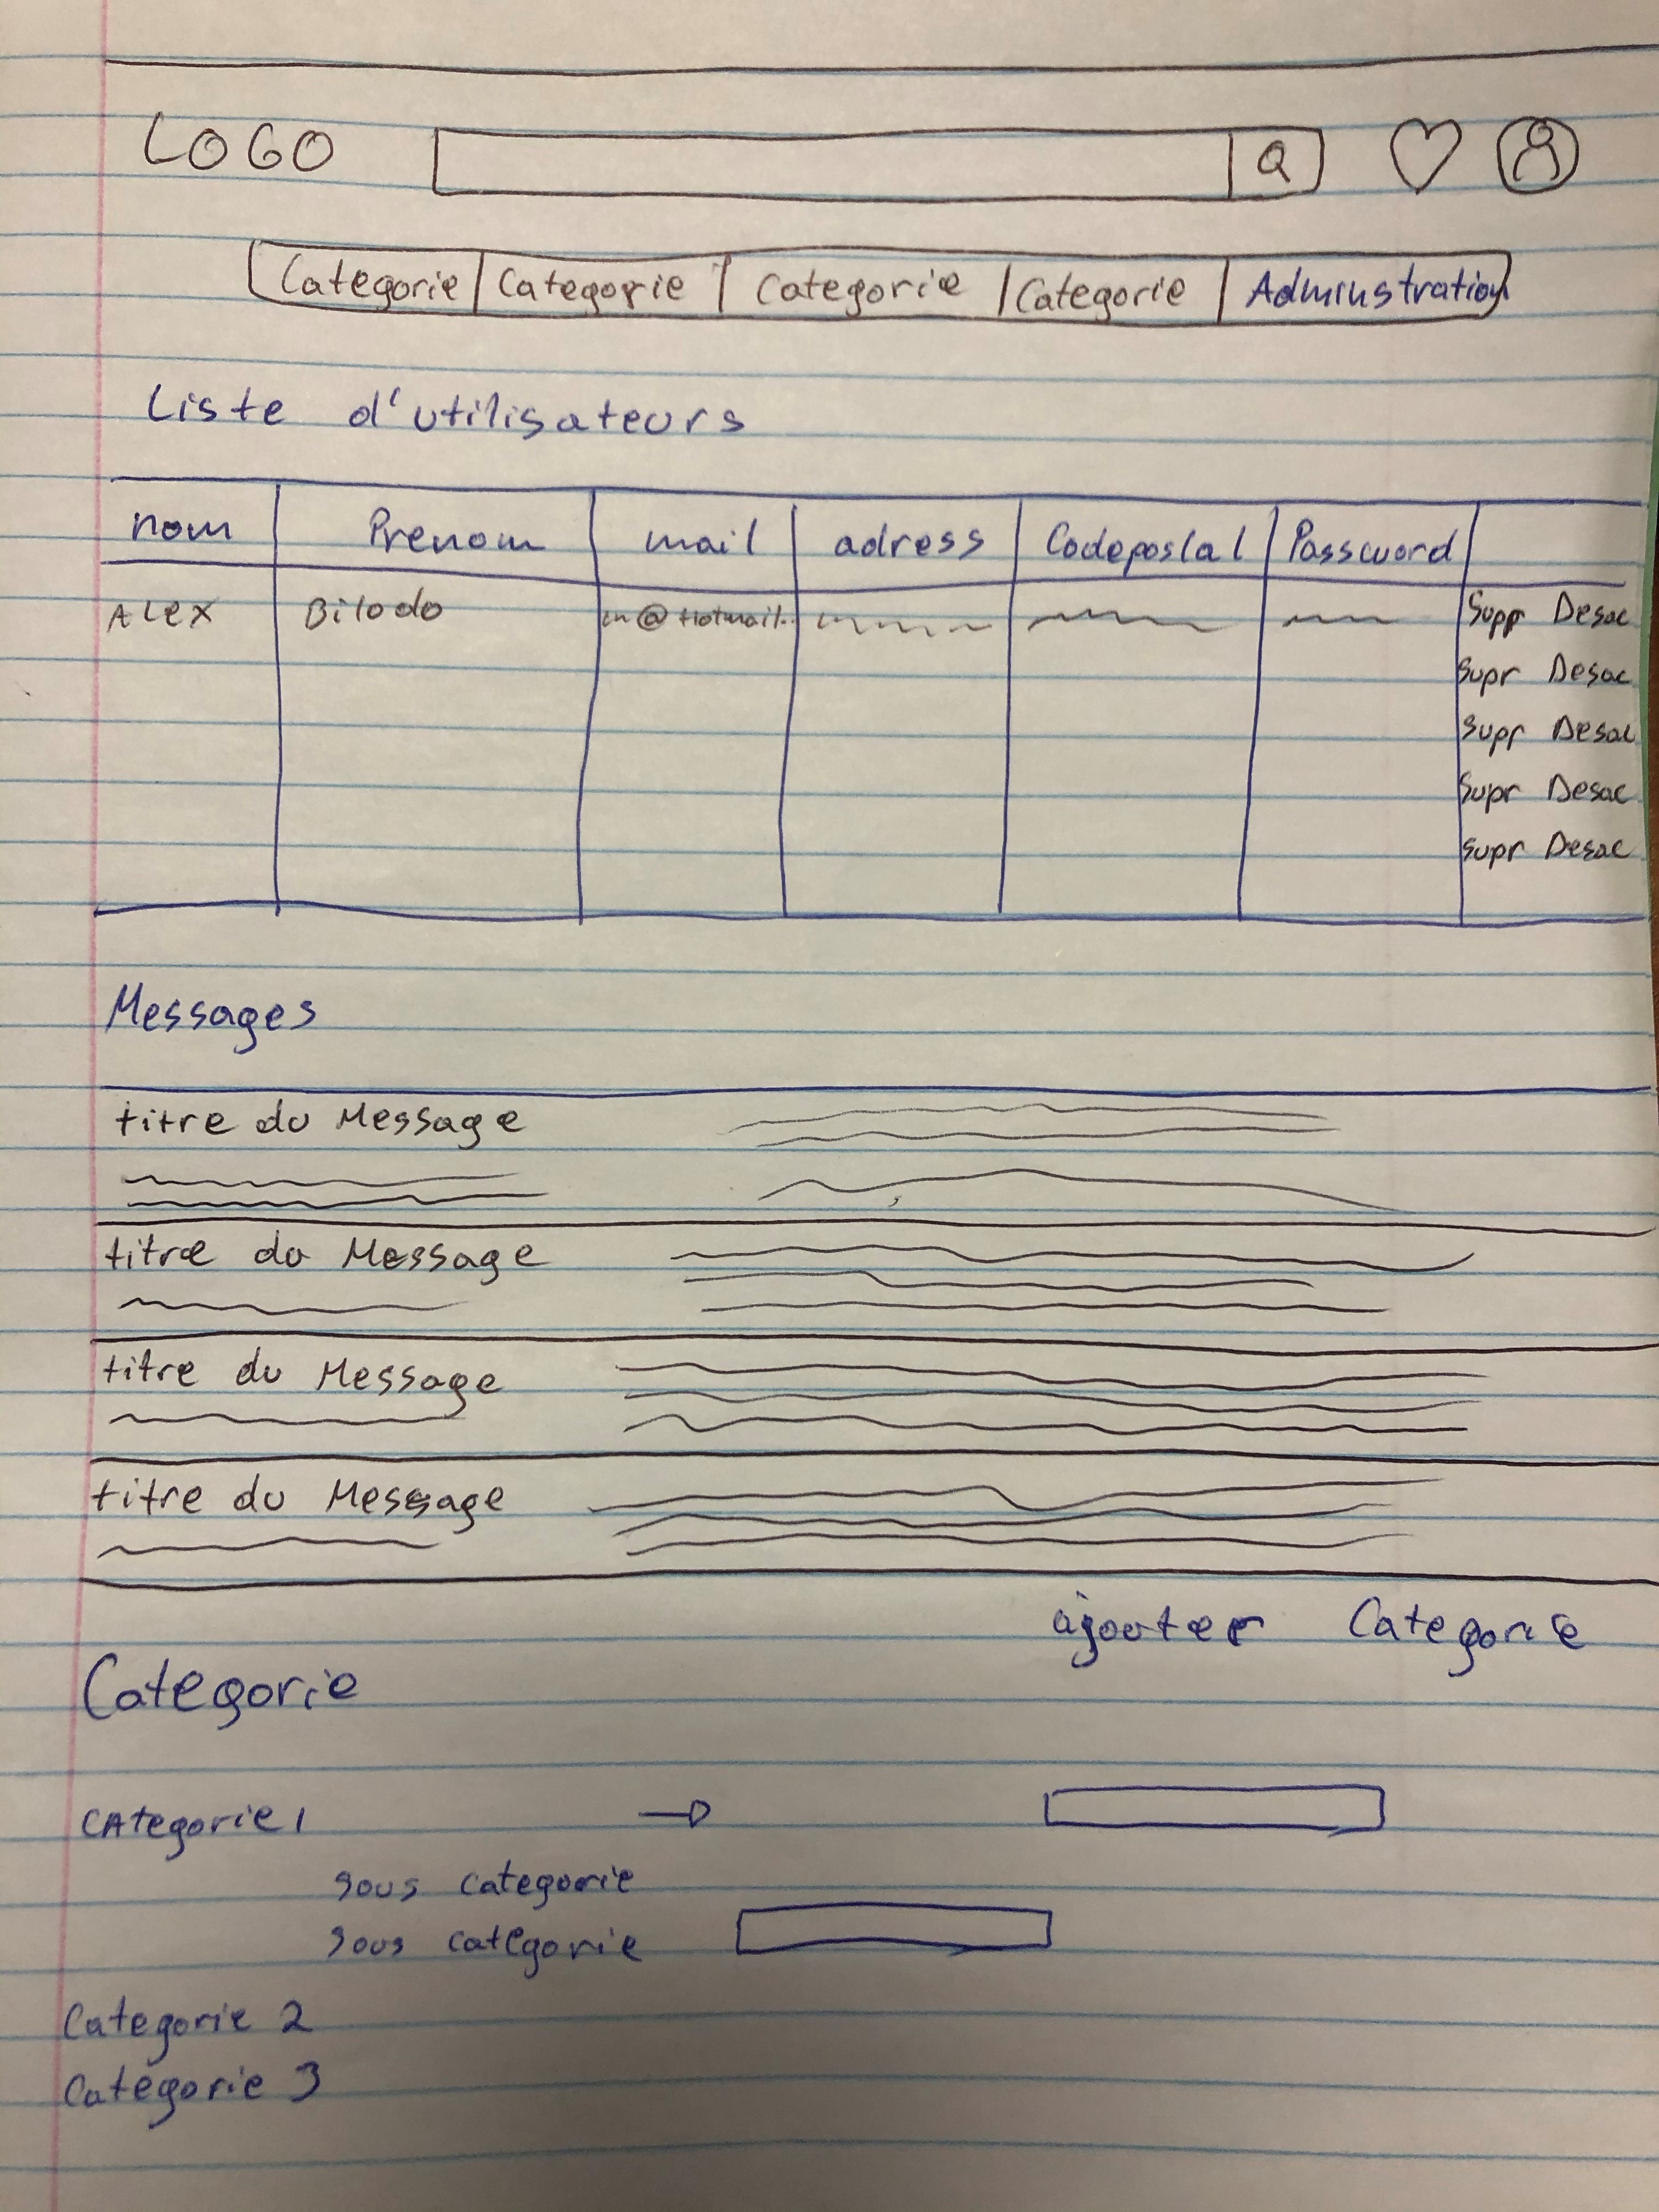 LOGO
Categorie Categorie Categorie Categorie Adminstration
Liste d'utilisateurs
nom Prenom mail adress Codepostal Password
ALEX Bilodo @Hotmail. Supr Desac
Supr Desac
Supr Desac
Supr Desac
Supr Desac
Messages
titre du Message
titre du Message
titre du Message
titre du Message
ajouter Categorie
Categorie
CAtegorie 1
sous categorie
sous categorie
Categorie 2
Categorie 3